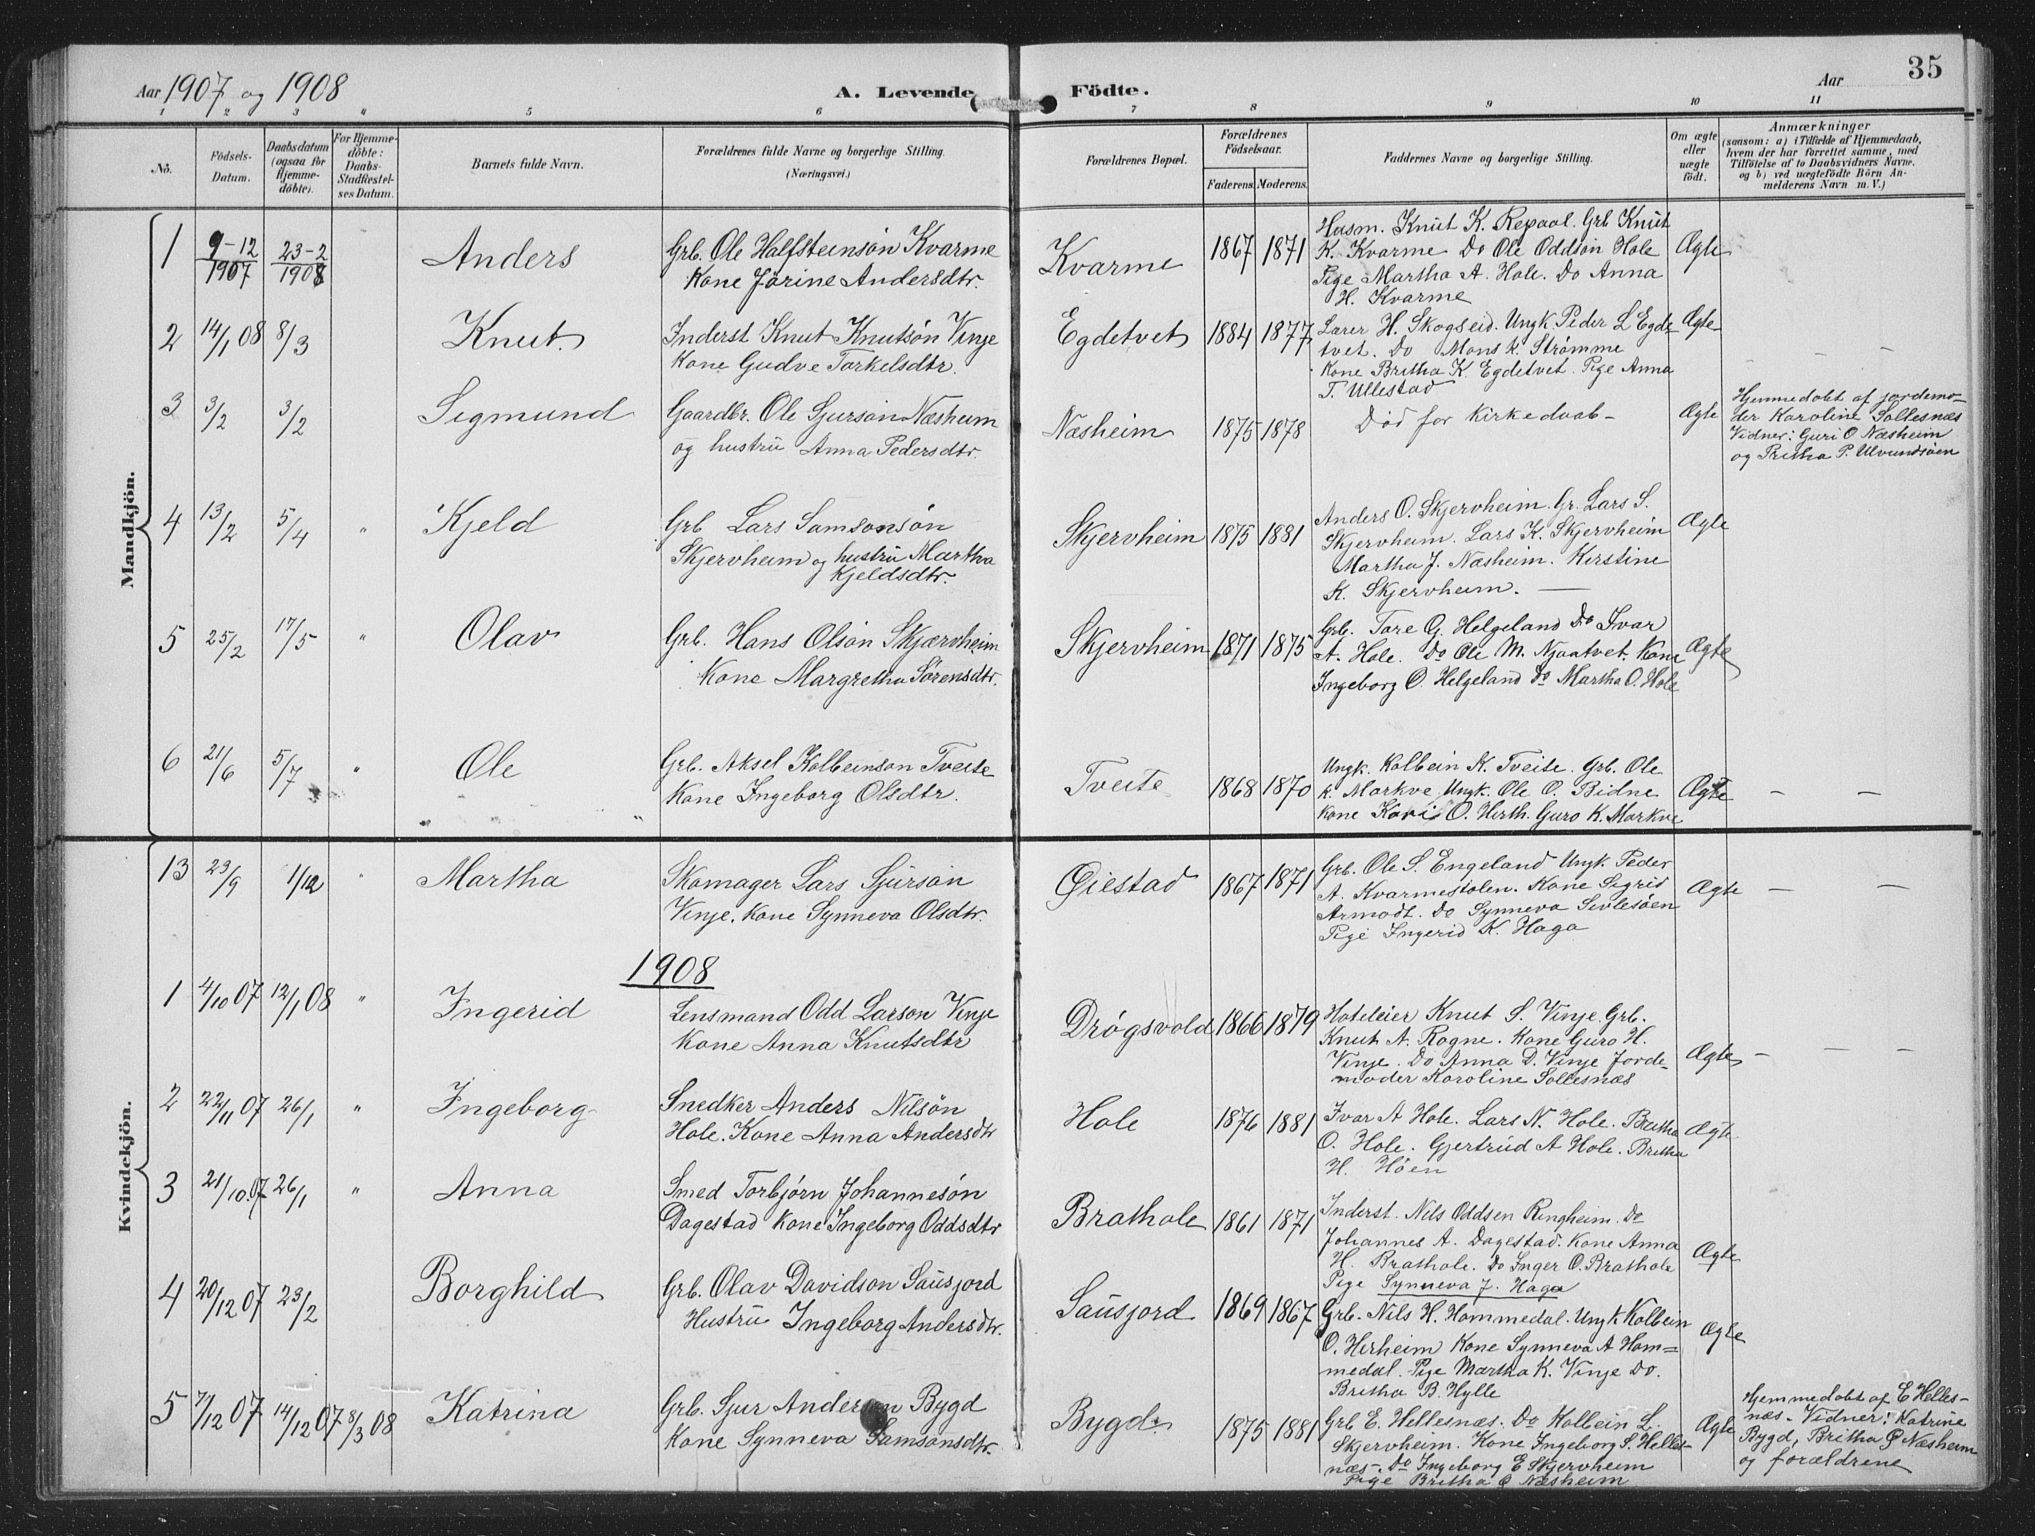 35
Aar 1907 og 1908
A. Levende Födte.
Aar
1 2 3 " 5 6 7 8 9 10 11
No.
Födsels-
Datum.
Daabsdatum
(ogsaa for
Hjemme-
döbte).
For Hjemme-
döbte:
Daabs-
Stadfæstel-
ses Datum.
Barnets fulde Navn.
Forældrenes fulde Navne og borgerlige Stilling.
(Næringsvei.)
Forældrenes Bopæl.
Forældrenes
Födselsaar.
Faderens.
Moderens.
Faddernes Navne og borgerlige Stilling.
Om ægte
eller
uægte
födt.
Anmærkninger
(saasom: a) i Tilfælde af Hjemmedaab,
hvem der har forrettet samme, med
Tilföielse af to Daabsvidners Navne.
og b) ved uægtefödte Börn An-
melderens Navn m. V.)
Mandkjön.
1
9-12
1907
23-2
1908
Anders
Grb. Ole Halfsteinsøn Kvarme
Kone Jorine Andersdtr.
Kvarme
1867 1871
Husm. Knut K. Repaal. Grb Knut
K. Kvarme Do Ole Oddsøn Hole
Pige Martha A. Hole. Do Anna
H. Kvarme
Ægte
2
14/1 08
8/3
Knut.
Inderst Knut Knutsøn Vinje
Kone Gudve Torkelsdtr.
Egdetvet
1884 1877
Lærer H. Skogseid. Ungk. Peder L Egde
tvet. Do Mons K. Strømme
Kone Britha K. Egdetvet. Pige Anna
T. Ullestad
Ægte
— — —
3
3/2
3/2
Sigmund
Gaardbr. Ole Sjursøn Næsheim
og hustru Anna Pedersdtr.
Næsheim
1875 1878
Død før kirkedaab-
Ægte
Hjemmedøbt af jordemo-
der Karoline Sollesnæs
Vidner: Guri O Næsheim
og Britha P. Ulvundsøen
4
13/2
5/4
"
Kjeld
Grb Lars Samsonsøn
Skjervheim og hustru Martha
Kjeldsdtr.
Skjervheim
1875 1881
Anders O. Skjervheim. Gr. Lars S.
Skjervheim. Lars K. Skjervheim
Martha J. Næsheim. Kirstine
K. Skjervheim. —
Ægte
5
25/2
17/5
"
Olav
Grb. Hans Olsøn Skjærvheim
Kone Margretha Sørensdtr.
Skjervheim
1871 1875
Grb. Tore G. Helgeland Do Ivar
A. Hole. Do Ole M. Njaatvet. Kone
Ingeborg O. Helgeland Do Martha O. Hole
Ægte
6
21/6
5/7
"
Ole
Grb. Aksel Kolbeinson Tveite
Kone Ingeborg Olsdtr.
Tveite
1868 1870
Ungk. Kolbein K. Tveite. Grb. Ole
K. Markve Ungk. Ole O. Bidne
Kone Kari O. Herth. Guro K. Markve
Ægte
— —
Kvindekjön.
13
23/9
1/12
"
Martha
Skomager Lars Sjursøn
Vinje. Kone Synneva Olsdtr.
Øiestad
1867 1871
Grb. Ole S. Engeland Ungk. Peder
A. Kvarmestølen. Kone Sigrid
Armodt. Do Synneva Sivlesøen
Pige Ingerid K. Haga
Ægte
— —
1908
1
4/10 07
12/1 08
"
Ingerid
Lensmand Odd Larson Vinje
Kone Anna Knutsdtr
Drøgsvold
1866 1879
Hoteleier Knut S. Vinje. Grb.
Knut A. Rogne. Kone Guro H.
Vinje. Do Anna D. Vinje Jorde-
moder Karoline Sollesnæs
Ægte
— — —
2
22/11 07
26/1
"
Ingeborg
Snedker Anders Nilsøn
Hole. Kone Anna Andersdtr
Hole
1876 1881
Ivar A Hole. Lars N. Hole. Britha
O. Hole. Gjertrud A Hole. Britha
H. Høen
Ægte
3
21/10 07
26/1
"
Anna
Smed Torbjørn Johannesøn
Dagestad Kone Ingeborg Oddsdtr
Brathole
1861 1871
Inderst. Nils Oddsen Ringheim. Do
Johannes A. Dagestad. Kone Anna
H. Brathole. Do Inger O. Brathole
Pige Synneva J. Haga
Ægte
4
20/12 07
23/2
Borghild
Grb. Olav Davidson Sausjord
Hustru Ingeborg Andersdtr.
Sausjord
1869 1867
Grb. Nils H. Hommedal. Ungk Kolbein
O. Herheim Kone Synneva A Hom=
medal. Pige Martha K. Vinje Do.
Britha B. Hylle
Ægte
5
7/12 07
14/12 07
8/3 08
Katrina
Grb. Sjur Anderson Bygd
Kone Synneva Samsonsdtr.
Bygd.
1875 1881
Grb E. Hellesnæs. Do Kolbein L.
Skjervheim. Kone Ingeborg S. Helles-
næs-. Do Ingeborg E Skjervheim
Pige Britha O Næsheim
Ægte
Hjemmedøbt af E Helles-
næs- Vidner: Katrine
Bygd, Britha O Næsheim
og forældrene